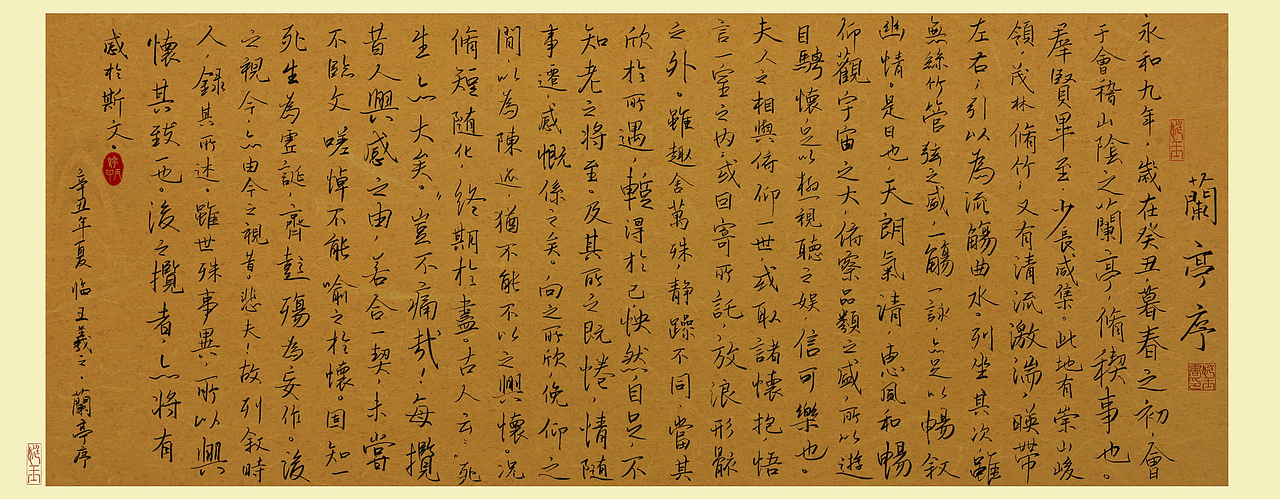 蘭亭序
永和九年，歲在癸丑暮春之初，會
于會稽山陰之蘭亭，脩稧事也。
羣賢畢至少長咸集。此地有崇山峻
領，茂林脩竹，又有清流激湍，暎帶
左右，引以為流觴曲水。列坐其次雖
無絲竹管弦之盛，一觴一詠，亦足以暢敘
幽情。是日也，天朗氣清，恵風和暢
仰觀宇宙之大，俯察品類之盛，所以遊
目騁懷，足以極視聽之娛，信可樂也。
夫人之相與俯仰一世，或取諸懷抱，悟
言一室之內；或因寄所託，放浪形骸
之外。雖趣舍萬殊，静躁不同，當其
欣於所遇，蹔得於己怏然自足，不
知老之将至。及其所之既惓，情隨
事遷，感慨係之矣。向之所欣，俛仰之
間，以為陳迹猶不能不以之興懷。况
脩短随化，終期於盡。古人云：“死
生亦大矣。”豈不痛哉！每攬
昔人興感之由，若合一契，未嘗
不臨文嗟悼不能喻之於懷。固知一
死生為虛誕，齊彭殤為妄作。後
之視今，亦由今之視昔。悲夫！故列敘時
人，録其所述。雖世殊事異，所以興
懷其致一也。後之攬者，亦将有
感於斯文。
辛丑年夏临王羲之，蘭亭序